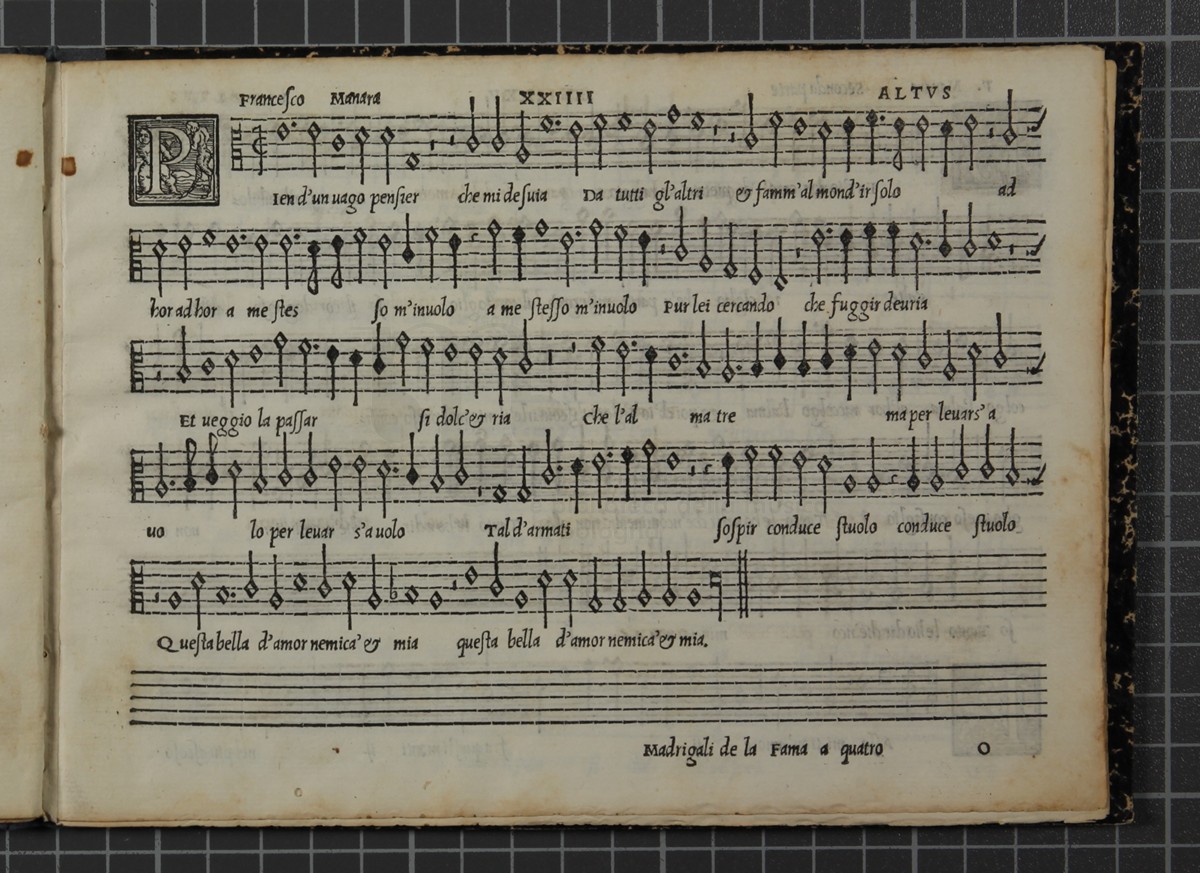 Francesco Manara XXIIII ALTVS
PIen d'un uago pensier che mi desuia Da tutti gl'altri & famm'al mond'ir solo ad
hor ad hor a me stes so m'inuolo a me stesso m'inuolo Pur lei cercando che fuggir deuria
Et ueggio la passar si dolc'& ria Che l'al ma tre ma per leuars'a
uo lo per leuar s'a uolo Tal d'armati sospir conduce stuolo conduce stuolo
Questa bella d'amor nemica'& mia questa bella d'amor nemica'& mia.
Madrigali de la Fama a quatro O